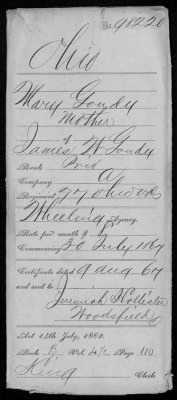 No. 98220
Ohio
Mary Goudy
Mother
of
James W Goudy
Rank Priv
Company A
Regiment 77 Ohio Vols
Wheeling Agency.
Rate per month 8
Commencing 30 July 1867
Certificate dated 9 aug 67
and sent to
Jeremiah Hollister
Woodsfield O
Act 14th July, 1862.
Book B Vol. Page 110
King Clerk